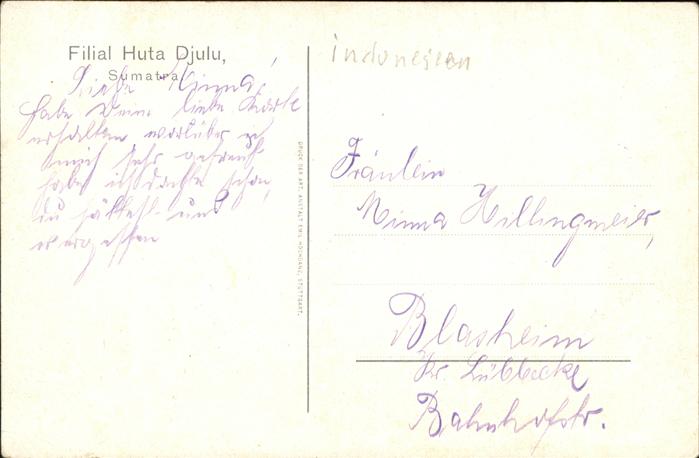 Filial Huta Djulu,
Sumatra
Liebe Minna!
habe Deine liebe Karte
erhalten worüber
mich sehr gefreut
habe ich dachte schon,
du hättest uns
vergessen
DRUCK DER ART. ANSTALT EMIL HOCHDANZ, STUTTGART.
indonesien
Fräulein
Minna Hillingmeier,
Blasheim
Kr. Lübbecke
Bahnhofstr.